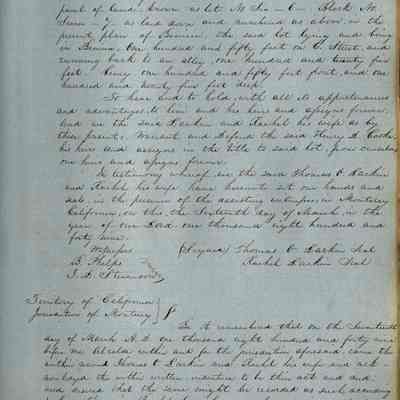 parcel of land known as lot No Six - 6 - Block No
Seven - 7 - as laid down and numbered as above in the
printed plan of Benicia, the said lot lying and being
in Benicia, one hundred and fifty feet on C Street, and
running back to an alley, one hundred and twenty five
feet. Being one hundred and fifty feet front, and one
hundred and twenty five feet deep.
To have and to hold, with all its appurtenances
and advantages to him and his heirs and assigns forever.
And we the said Larkin and Rachel his wife as by
these presents, Warrant and Defend the said Henry D. Cooke,
his heirs and assigns in the title to said lot, from ourselves
our heirs and assigns forever.
In testimony whereof we the said Thomas O Larkin
and Rachel his wife have hereunto set our hands and
seals in the presence of the assisting witnesses, in Monterey
California, on this, the Sixteenth day of March, in the
year of our Lord one thousand eight hundred and
forty nine.
Witnesses (Signed) Thomas O Larkin Seal
B. Phelps Rachel Larkin Seal
J. D. Stevenson
Territory of California
Jurisdiction of Monterey
Be it remembered that on the Seventeenth
day of March A.D. one thousand eight hundred and forty nine
before me Alcalde within and for the jurisdiction aforesaid came the
within named Thomas O Larkin and Rachel his wife and ack-
nowledged the within written indenture to be their act and deed
and desired that the same might be recorded as such according